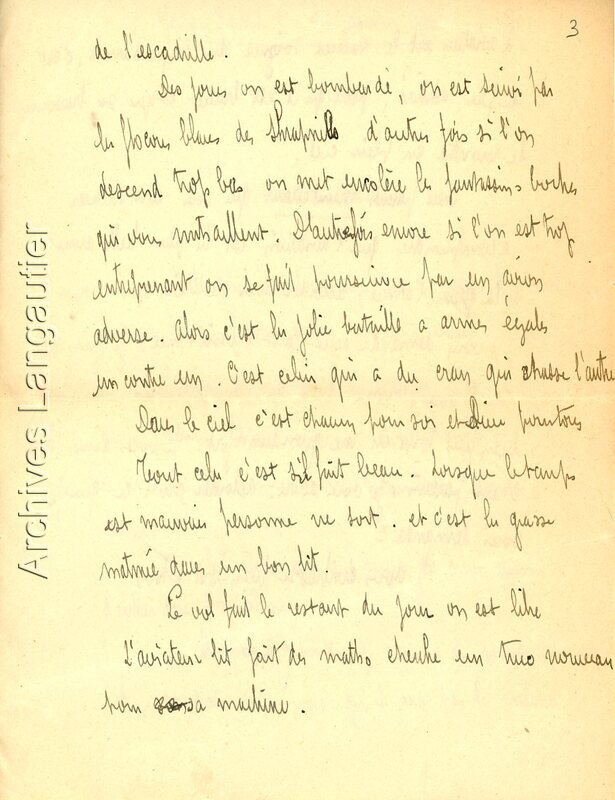 3
de l'escadrille.
Des jours on est bombardé, on est suivi par
les flocons blancs des Shrapnels d'autres fois si l'on
descend trop bas on met en colère les fantassins boches
qui vous mitraillent. D'autres fois encore si l'on est trop
entreprenant on se fait poursuivre par un avion
adverse. Alors c'est la jolie bataille a armes égales
un contre un. C'est celui qui a du cran qui chasse l'autre
Dans le ciel c'est chacun pour soi et Dieu pour tous
Tout cela c'est s'il fait beau. Lorsque le temps
est mauvais personne ne sort. et c'est la grasse
matinée dans un bon lit.
Le vol fait le restant du jour on est libre
L'aviateur lit fait des maths cherche un truc nouveau
pour sa machine.
Archives Langautier